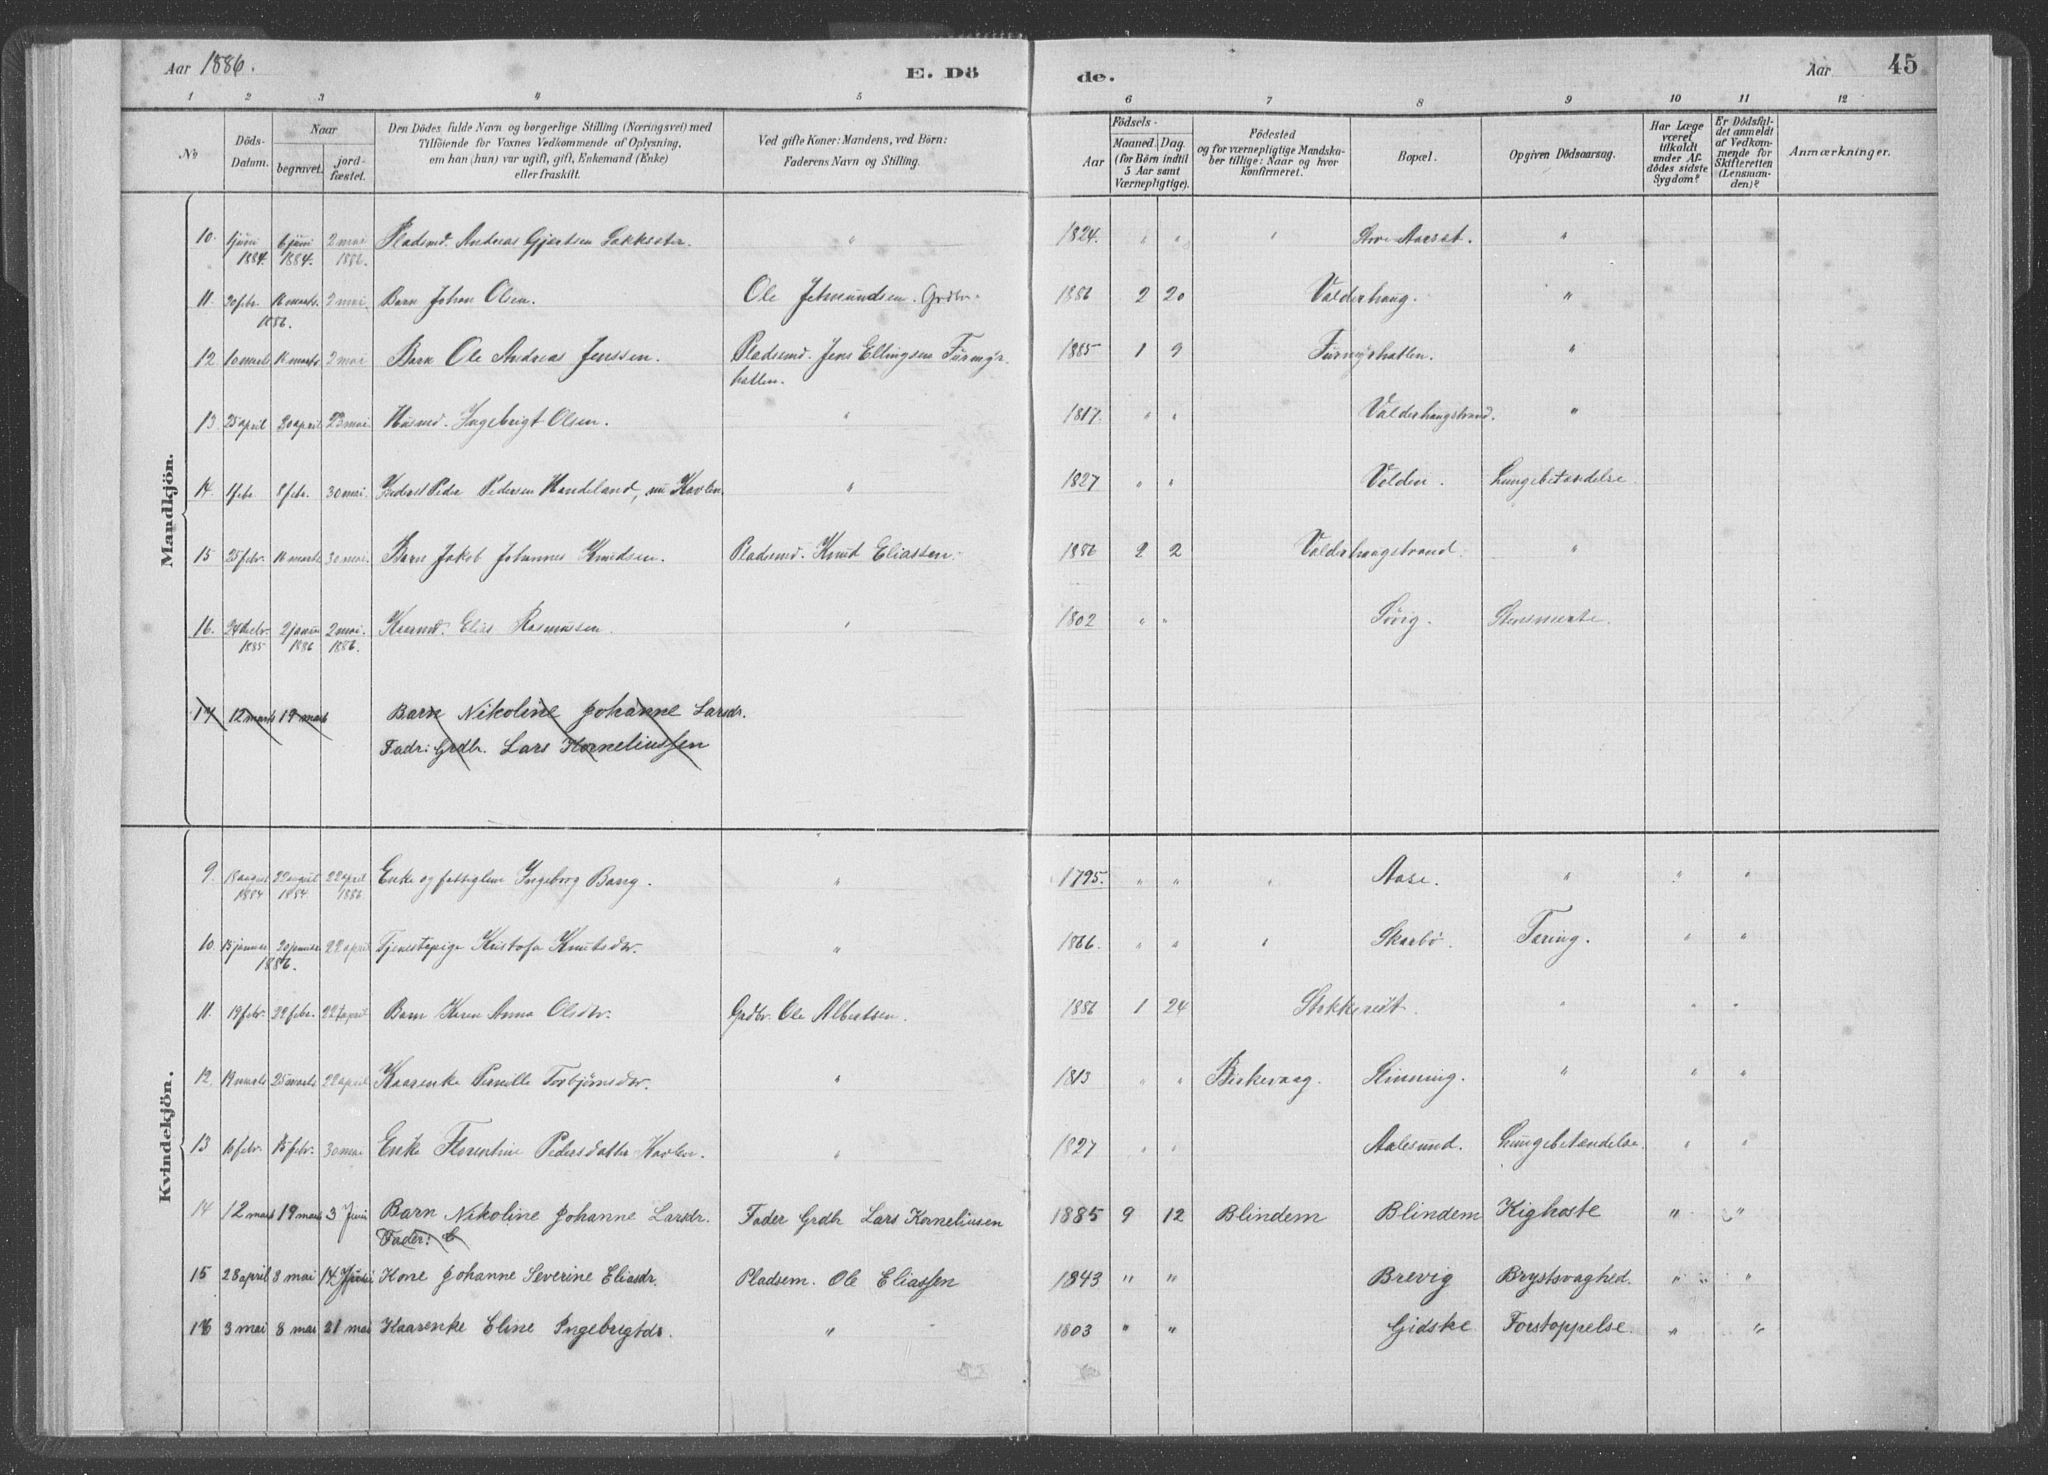 Aar 1886. E. Dö de. Aar 45
1 2 3 4 5 6 7 8 9 10 11 12
No
Döds-Datum.
Naar
begravet.
jord-fæstet.
Den Dödes fulde Navn og borgerlige Stilling (Næringsvei) med
Tilföiende for Voxnes Vedkommende af Oplysning,
om han (hun) var ugift, gift, Enkemand (Enke)
eller fraskilt.
Ved gifte Koner: Mandens, ved Börn:
Faderens Navn og Stilling.
Födsels-
Aar
Maaned. Dag.
(for Börn indtil
5 Aar samt
Værnepligtige).
Födested
og for værnepligtige Mandska-
ber tillige: Naar og hvor
konfirmeret.
Bopæl.
Opgiven Dödsaarsag.
Har Læge
været
tilkaldt
under Af-
dödes sidste
Sygdom?
Er Dödsfal-
det anmeldt
af Vedkom-
mende for
Skifteretten
(Lensman-
den)?
Anmærkninger.
Mandkjön.
10. 1 juni 1884. 6 juni 1884. 2 mai 1886. Pladsmd. Andreas Gjertsen " 1824. " " " Aarset. "
11. 20 febr. 16 marts. 2 mai. Barn Johan Olsen. Ole Jetmundsen. Grdbr. 1886 2 20 Valderhaug. "
1886.
12 10 marts 16 marts 2 mai Barn Ole Andreas Jenssen. Pladsmd. Jens Ellingsen Furmyr- 1885 1 9 Furmyrhatlen. "
hatlen.
13 25 april 30 april 23 mai. Husmd. Ingebrigt Olsen. " 1817. " " Valderhaugstrand. "
14. 1 febr. 8 febr. 30 mai. Peder Pedersen Handeland, nu Kavlen. " 1827 " " Volden. Lungebetændelse
15 25 febr. 16 marts 30 mai. Barn Jakob Johannes Knudsen. Pladsmd. Knud Eliassen. 1886 2 2 Valderhaugstrand. "
16. 24 decbr. 1885 2 janu 1886 2 mai. 1886. Kaarmd. Elias Rasmussen. " 1802 " " Sövig. Stensmerte.
14 12 marts 19 marts Barn Nikoline Johanne Larsdr.
Fadr: Grdbr. Lars Korneliussen
Kvindekjön.
9. 18 august 1884 22 august 1884. 22 april 1886. Enke og fattiglem Ingeborg Bang. " 1795. " " " Aase. " " "
10 15 januar 20 januar 22 april Tjenestepige Kristofa Knutsdtr. " 1866. " " " Skarbö. Tæring. " "
1886.
11. 19 febr. 22 febr. 22 april Barn Karen Anna Olsdtr. Grdbr. Ole Albertsen. 1886 1 24 Stokkereit. " " "
12. 19 marts 25 marts 22 april Kaarenke Pernille Torbjörnsdtr. " 1813 " " Birkevaag. Slinning. " " "
13 6 febr. 15 febr. 30 mai Enke Florentine Pedersdatter Kavlen. " 1827 " " Aalesund. Lungebetændelse. " "
14 12 mars 19 mars 3 Juni Barn Nikoline Johanne Larsdr. Fader Grdbr Lars Korneliusen 1885 9 12 Blindem Blindem Kighoste " "
Fader:
15 28 april 3 mai 14 Juni Kone Johanne Severine Eliasdr. Pladsem. Ole Eliassen 1843 " " Brevig Brystsvaghed. " "
16 3 mai 8 mai 21 mai Kaarenke Eline Ingebrigtdr. " 1803 " " Gidske Forstoppelse. " "